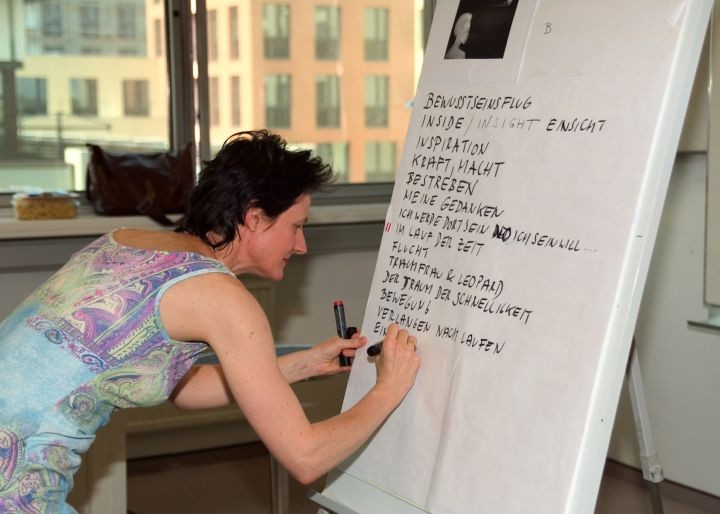 B
BEWUSSTSEINSFLUG
INSIDE / INSIGHT EINSICHT
INSPIRATION
KRAFT, MACHT
BESTREBEN
MEINE GEDANKEN
ICH WERDE DORT SEIN WO ICH SEIN WILL ....
" IM LAUF DER ZEIT
FLUCHT
TRAUMFRAU & LEOPARD
DER TRAUM DER SCHNELLIGKEIT
BEWEGUNG
VERLANGEN NACH LAUFEN
EIN